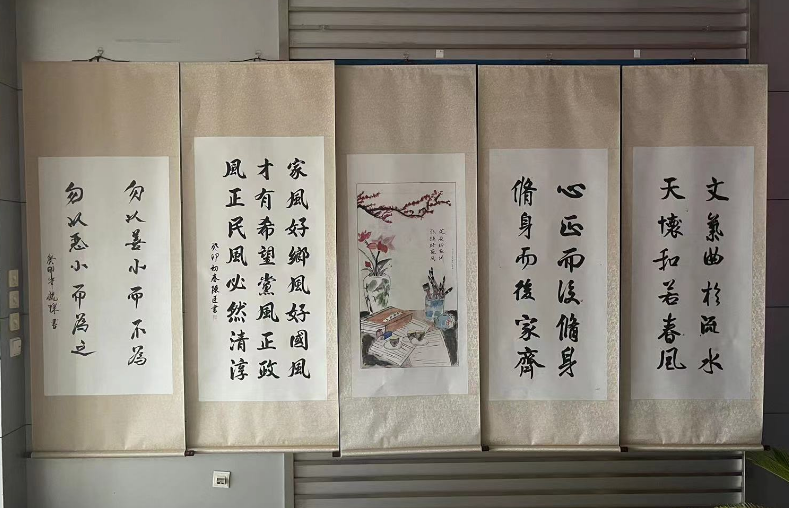 文氣曲於流水
天懷和若春風
心正而後脩身
脩身而後家齊
家風好鄉風好國風
才有希望黨風正政
風正民風必然清淳
癸卯初春陳書
勿以善小而不為
勿以惡小而為之
癸卯年書